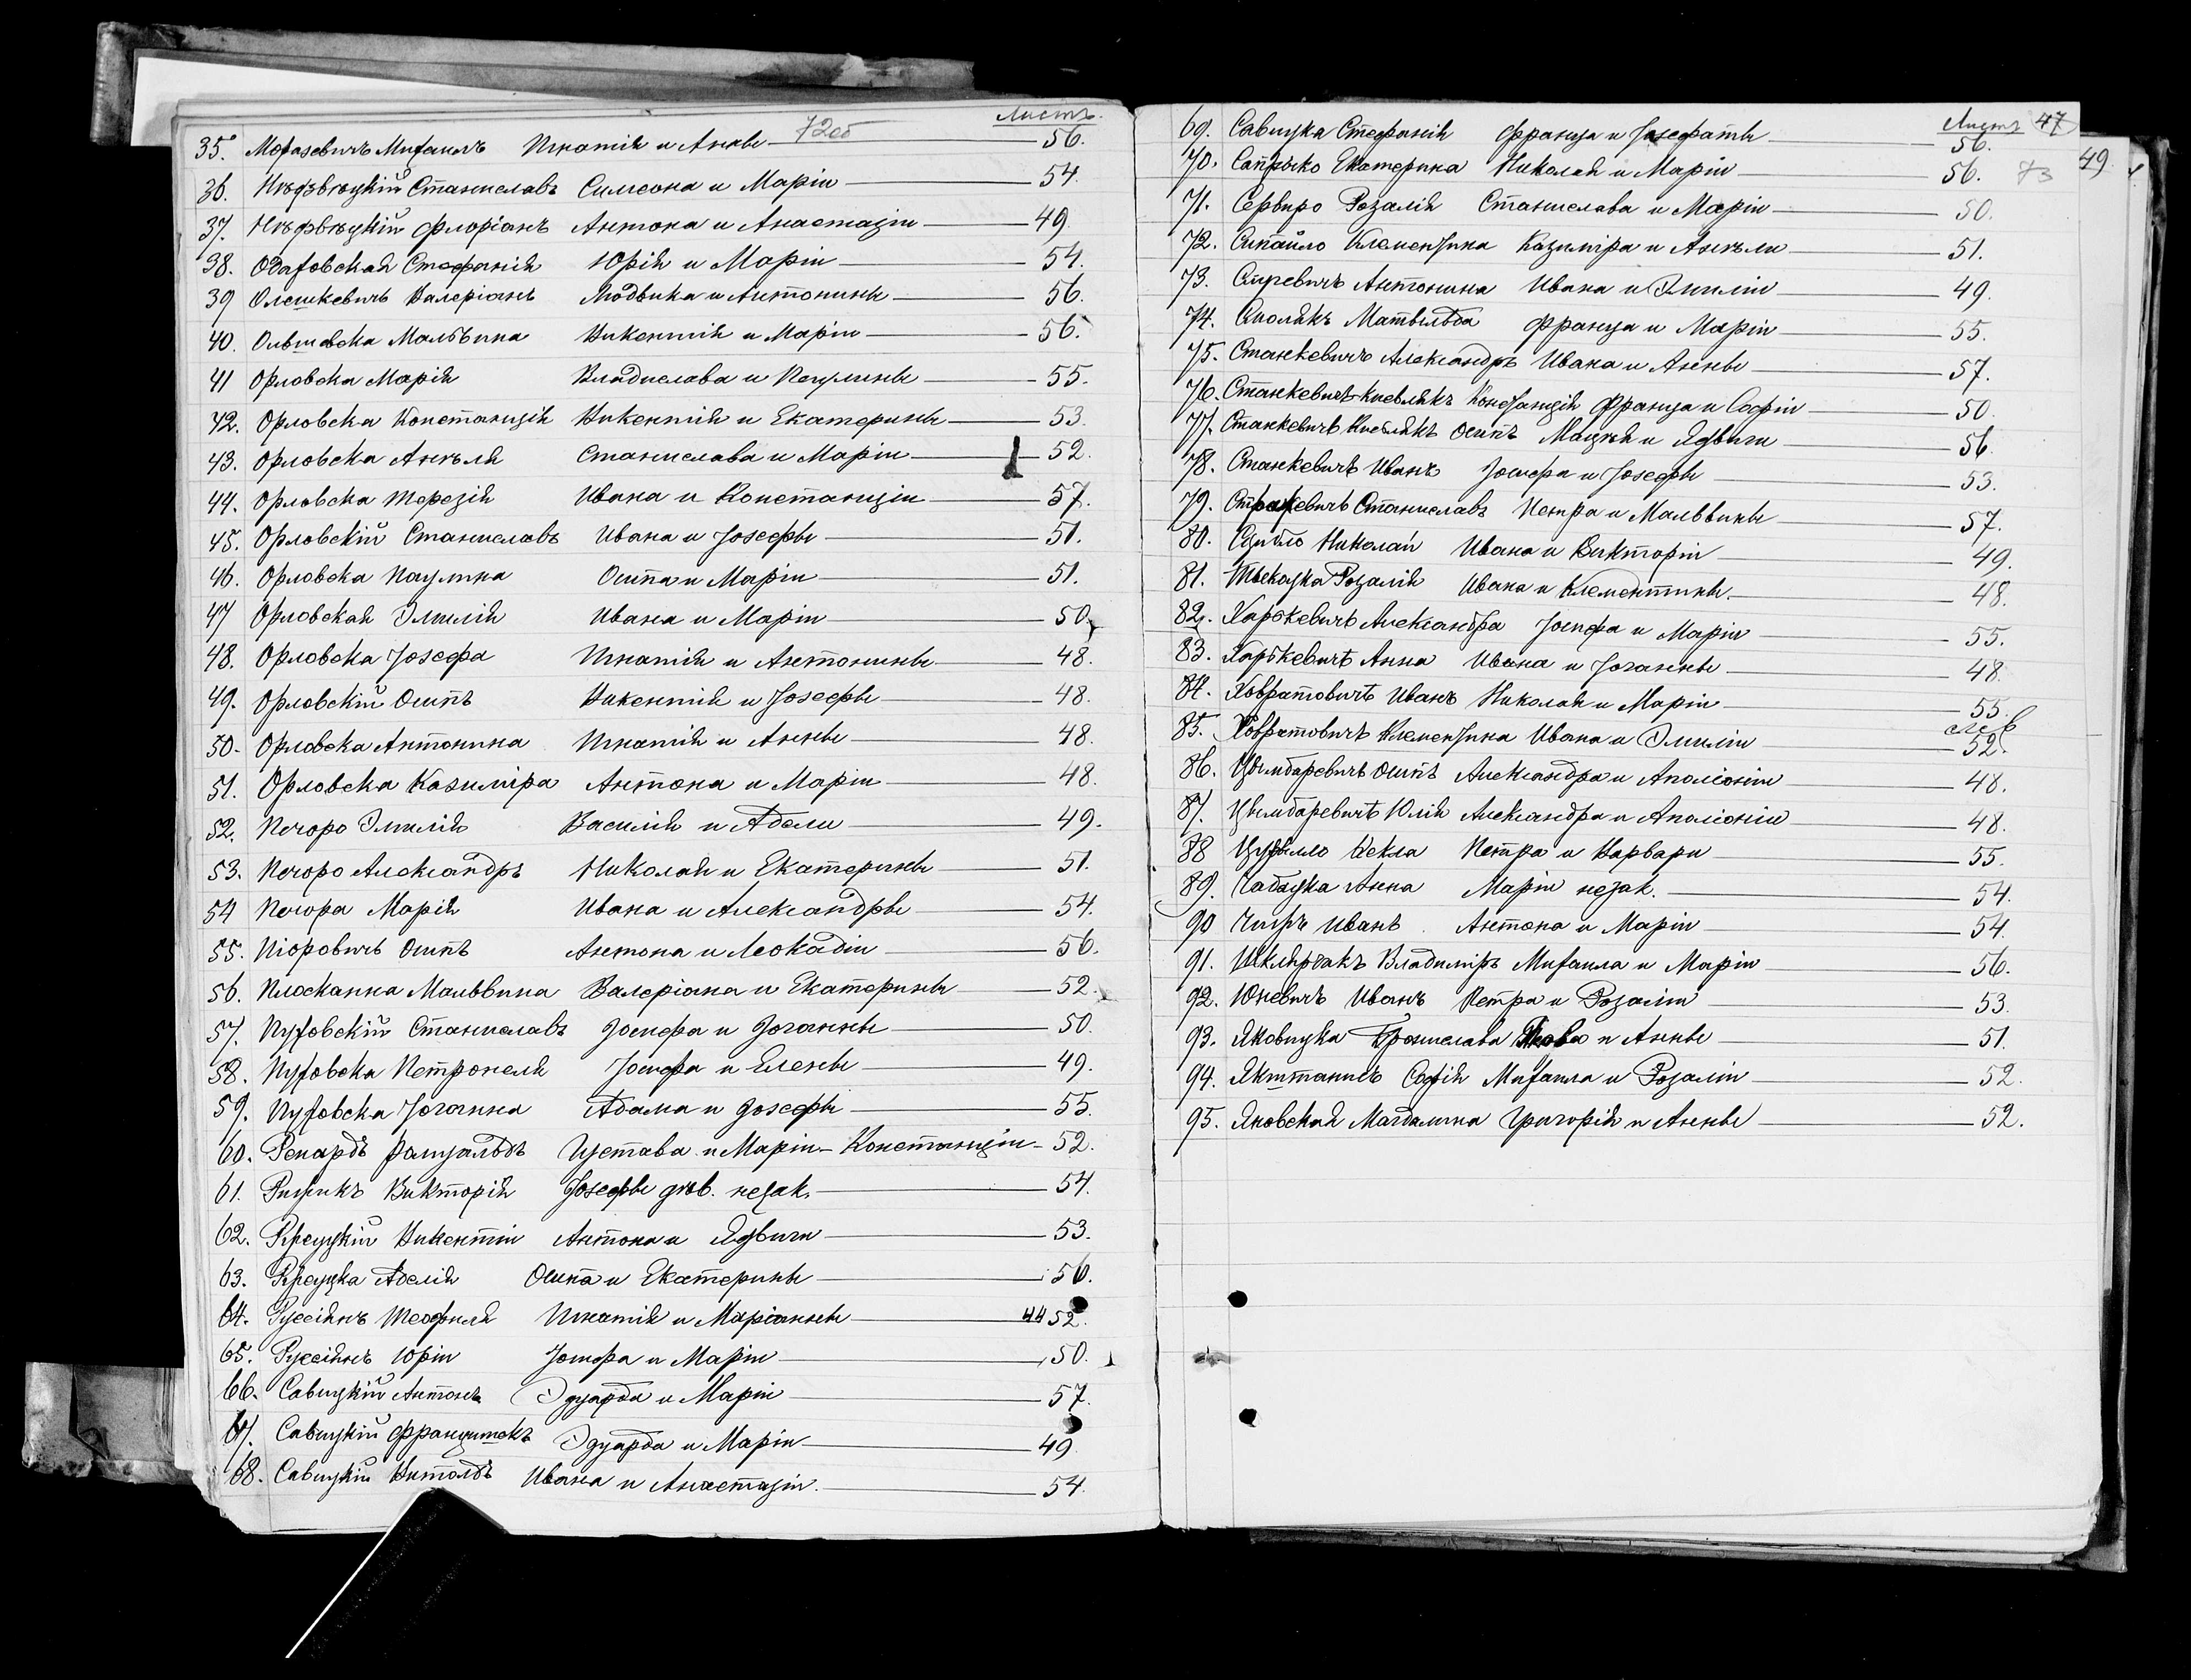 72об Листъ.
35. Морозевичъ Михаилъ Игнатія и Анны 56.
36. Нѣдзвѣцкій Станиславъ Симеона и Маріи 54.
37. Нѣдзвѣцкій Флоріанъ Антона и Анастазіи 49.
38. Одаховская Стефанія Юрія и Маріи 54.
39 Олешкевичъ Валеріанъ Людвика и Антонины 56.
40. Ольшевска Мальвина Викентія и Маріи 56.
41 Орловска Марія Владислава и Паулины 55.
42. Орловска Констанція Викентія и Екатерины 53.
43. Орловска Анѣля Станислава и Маріи 52.
44. Орловска Терезія Ивана и Констанціи 57.
45. Орловскій Станиславъ Ивана и Jозефы 51.
46. Орловска Паулина Осипа и Маріи 51.
47 Орловская Эмилія Ивана и Маріи 50.
48. Орловска Jозефа Игнатія и Антонины 48.
49. Орловскій Осипъ Викентія и Jозефы 48.
50. Орловска Антонина Игнатія и Анны 48.
51. Орловска Казиміра Антона и Маріи 48.
52. Печоро Эмилія Василія и Адели 49.
53. Печоро Александръ Николая и Екатерины 51.
54 Печора Марія Ивана и Александры 54.
55. Піоровичъ Осипъ Антона и Леокадіи 56.
56. Плосканна Мальвина Валеріана и Екатерины 52.
57. Пуховскій Станиславъ Jосифа и Jоганны 50.
58. Пуховска Петронеля Jосифа и Елены 49.
59. Пуховска Jоганна Адама и Jозефы 55.
60. Ренардъ Ромуальдъ Густава и Маріи-Констанціи 52.
61. Викторія Jозефы дѣв. незак. 54.
62. Викентій Антона и Ядвиги 53.
63. Аделія Осипа и Екатерины 56.
64. Руссіянъ Теофиля Игнатія и Маріанны 52.
65. Руссіянъ Юрій Jосифа и Маріи 50.
66. Савицкій Антонъ Эдуарда и Маріи 57.
67. Савицкій Францишекъ Эдуарда и Маріи 49
68. Савицкій Витольдъ Ивана и Анастазіи. 54.
Листъ 47
49.
73
69. Савицка Стефанія Франца и Jозефаты 56.
70. Сапрыко Екатерина Николая и Маріи 56.
71. Сервиро Розалія Станислава и Маріи 50.
72. Сипайло Клементина Казиміра и Анѣли 51.
73. Сиревичъ Антонина Ивана и Эмиліи 49.
74. Смолякъ Матвильда Франца и Маріи 55.
75. Станкевичъ Александръ Ивана и Анны 57.
76. Станкевичъ-Кисвлякъ Констанція Франца и Софіи 50.
77. Станкевичъ Кисвлякъ Осипъ Мацея и Ядвиги 56.
78. Станкевичъ Иванъ Jосифа и Jозефы 53.
79. Станиславъ Петра и Мальвины 57.
80. Николай Ивана и Викторіи 49.
81. Розалія Ивана и Клементины. 48.
82. Харкевичъ Александра Jосифа и Маріи 55.
83. Харькевичъ Анна Ивана и Jоганны 48.
84. Ховратовичъ Иванъ Николая и Маріи 55.
85. Ховратовичъ Клементина Ивана и Эмиліи 52.
86. Цымбаревичъ Осипъ Александра и Аполіоніи 48.
87. Цымбаревичъ Юлія Александра и Аполіоніи 48.
88 Цурылло Текла Петра и Варвары 55.
89. Чабацка Анна Маріи незак. 54.
90 Чигръ Иванъ Антона и Маріи 54.
91. Шклярчакъ Владиміръ Михаила и Маріи 56.
92. Юневичъ Иванъ Петра и Розаліи 53.
93. Яковицка Бронислава Якова и Анны 51.
94. Софія Михаила и Розаліи 52.
95. Яновская Магдалина Григорія и Анны 52.